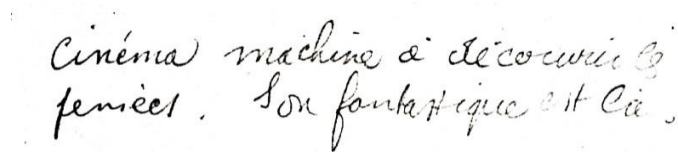 Cinéma machine à découvrir
. Son fantastique est là.